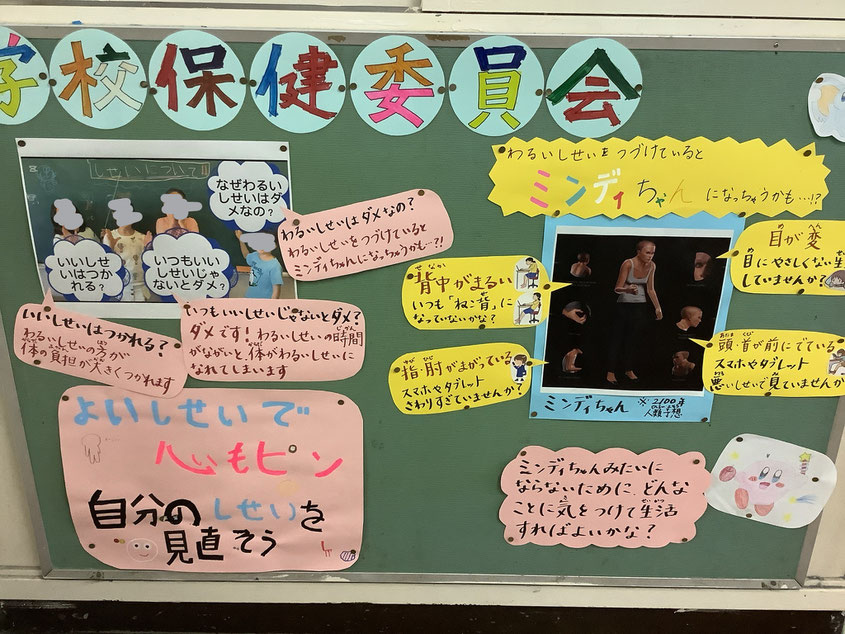 学校保健委員会
しせいについて!!
なぜわるい
しせいはダ
メなの?
いいしせ
いはつか
れる?
いつもいい
しせいじゃ
ないとダメ?
わるいしせいはダメなの?
わるいしせいをつづけていると
ミンディちゃんになっちゃうかも…?!
いいしせいはつかれる?
わるいしせいの方が
体の負担が大きくつかれます
いつもいいしせいじゃないとダメ?
ダメです!わるいしせいの時間
がながいと、体がわるいしせいに
なれてしまいます
よいしせいで
心もピン
自分のしせいを
見直そう
わるいしせいをつづけていると
ミンディちゃんになっちゃうかも…!?
背中がまるい
いつも「ねこ背」に
なっていないかな?
指・肘がまがっている
スマホやタブレット
さわりすぎていませんか?
目が変
目にやさしくない生
していませんか?
頭・首が前にでている
スマホやタブレット
悪いしせいで見ていませんか
ミンディちゃん
※2100年
人類予想
ミンディちゃんみたいに
ならないために、どんな
ことに気をつけて生活
すればよいかな?